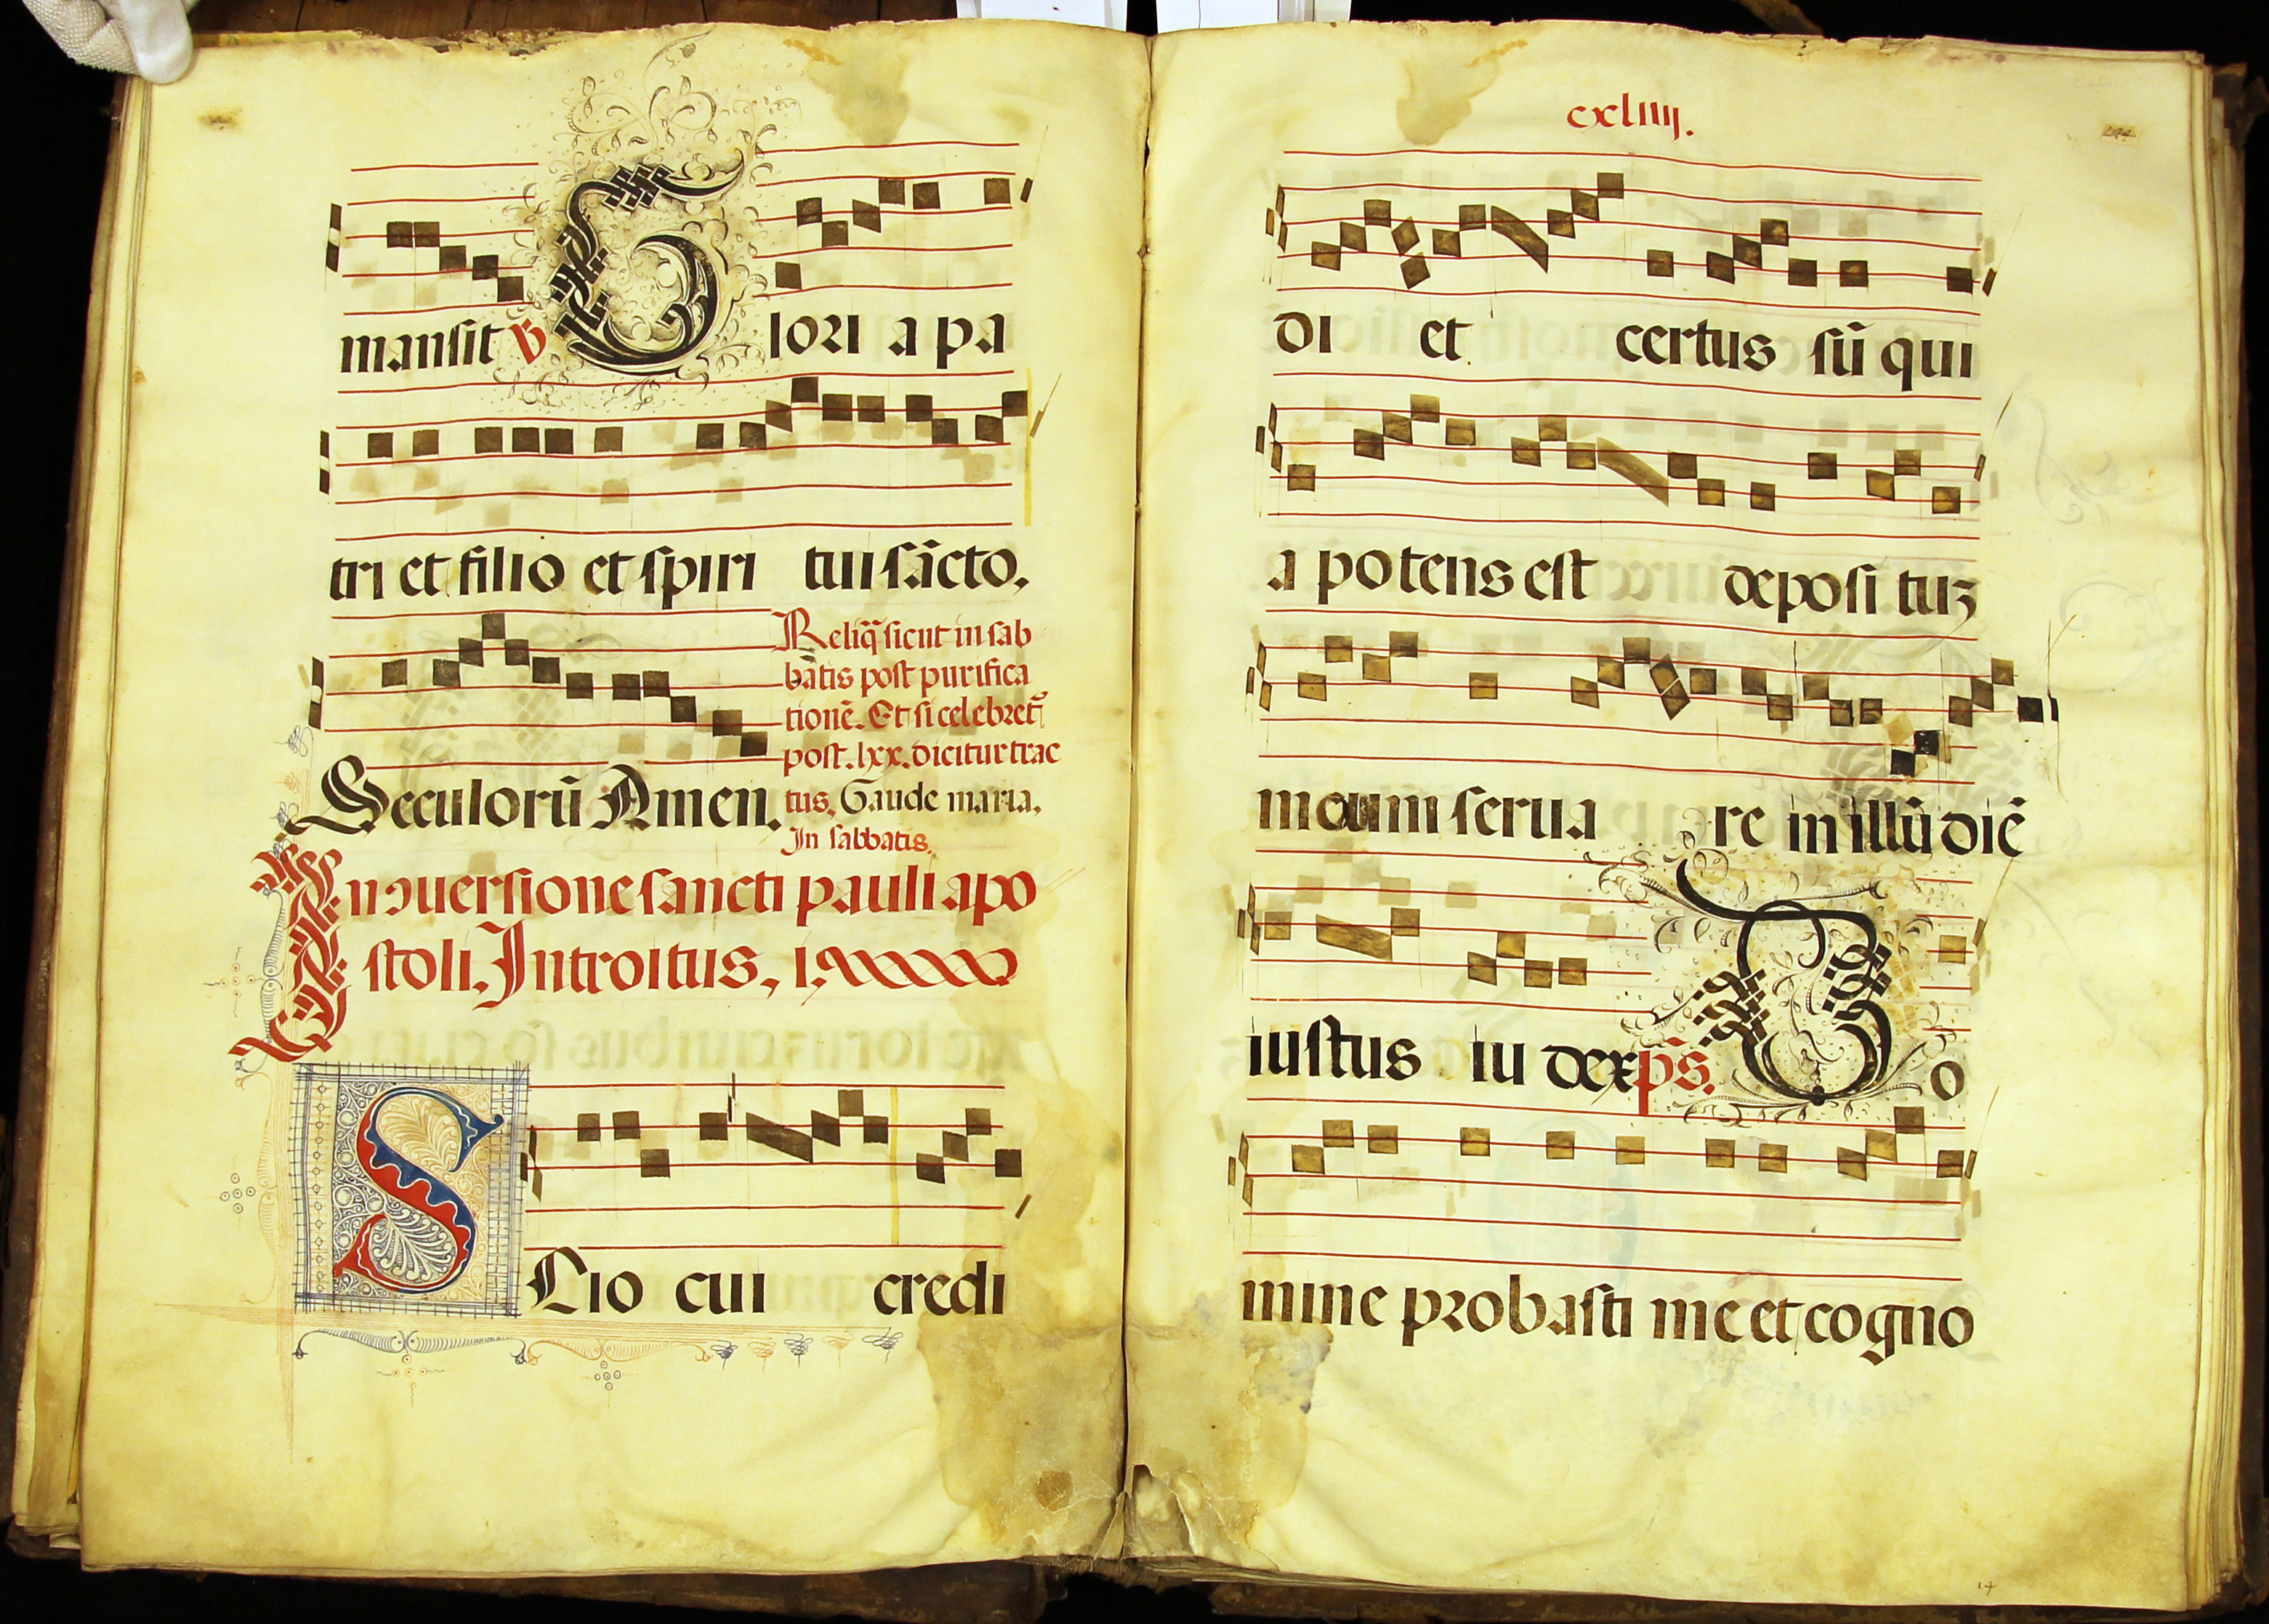 mansit V Glori a pa
tri et filio et spiri tui sācto.
Seculorū Amen.
Reliq̄ sicut in sab
batis post purifica
tionē. Et si celebret᷑
post. lxx. dicitur trac
tus. Gaude maria.
In sabbatis.
In ↄuersione sancti pauli apo
stoli. Introitus. i.
Scio cui credi
cxliiij.
di et certus sū qui
a potens est deposi tuȝ
meum serua re in illū diē
iustus iu dex p̄s. Do
mine probasti me et cogno